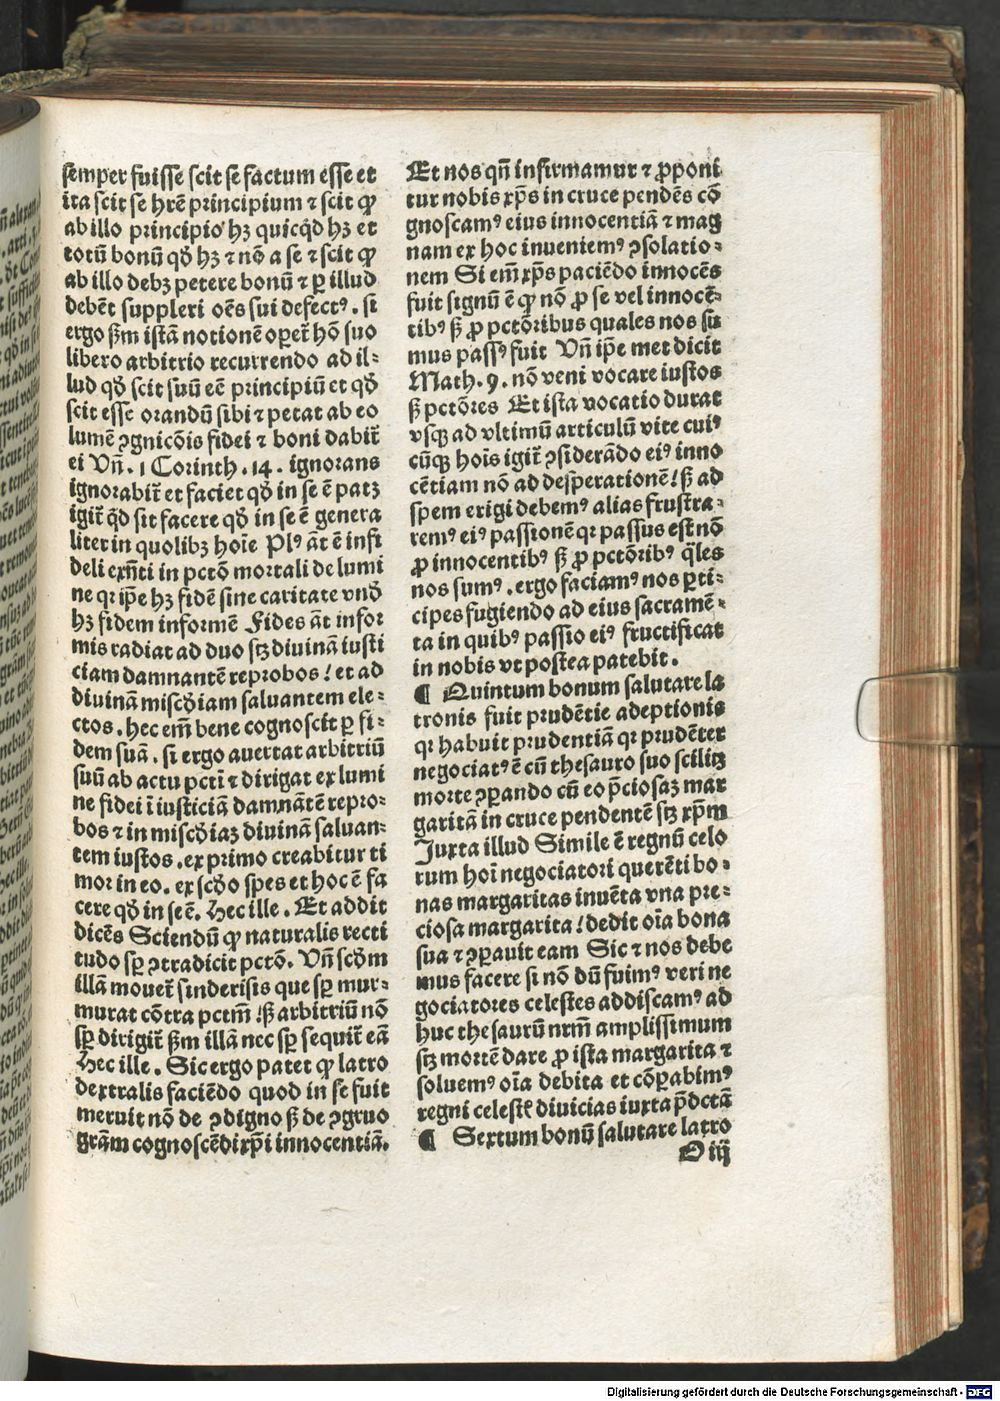 semper fuisse scit se factum esse et
ita scit se hr̄e principium ⁊ scit ꝙ
ab illo principio hꝫ quicq̇d hꝫ et
totū bonū qđ hꝫ ⁊ nō a se ⁊ scit ꝙ
ab illo debꝫ petere bonū ⁊ ꝑ illud
debēt suppleri oēs sui defectꝰ. si
ergo ßm istā notionē oꝑet̄ hō suo
libero arbitrio recurrendo ad il⸗
lud qđ scit suū eē principiū et qđ
scit esse orandū sibi ⁊ petat ab eo
lumē ꝯgnicōis fidei ⁊ boni dabit̄
ei Vn̄. 1 Corinth. 14. ignorans
ignorabit̄ et faciet qđ in se ē patꝫ
igit̄ q̇d sit facere qđ in se ē genera
liter in quolibꝫ hoīe Plꝰ āt ē infi
deli exn̄ti in pctō mortali de lumi
ne qꝛ ip̄e hꝫ fidē sine caritate vnđ
hꝫ fidem informē Fides āt infor
mis radiat ad duo sꝫ diuinā iusti
ciam damnantem reprobos! et ad
diuinā misc̄diam saluantem ele⸗
ctos. hec em̄ bene cognoscit ꝑ fi⸗
dem suā. si ergo auertat arbitriū
suū ab actu pcti ⁊ dirigat ex lumi
ne fidei ī iusticiā damnātē repro⸗
bos ⁊ in misc̄diaꝫ diuinā saluan⸗
tem iustos. ex primo creabitur ti
mor in eo. ex scđo spes et hoc ē fa
cere qđ in se ē. Hec ille. Et addit
dicēs Sciendū ꝙ naturalis recti
tudo sꝑ ꝯtradicit pctō. Vn̄ scđm
illā mouet̄ sinderisis que sꝑ mur⸗
murat cōtra pctm̄! ß arbitriū nō
sꝑ dirigit̄ ßm illā nec sꝑ sequit̄ eā
Hec ille. Sic ergo patet ꝙ latro
dextralis faciēdo quod in se fuit
meruit nō de ꝯdigno ß de ꝯgruo
gr̄am cognoscēdi xp̄i innocentiā.
Et nos qn̄ infirmamur ⁊ ꝓponi
tur nobis xp̄s in cruce pendēs cō
gnoscamꝰ eius innocentiā ⁊ mag
nam ex hoc inueniemꝰ ꝯsolatio⸗
nem Si em̄ xp̄s paciēdo innocēs
fuit signū ē ꝙ nō ꝓ se vel innocē⸗
tibꝰ ß ꝓ pctōribus quales nos su
mus passꝰ fuit Vn̄ ip̄e met dicit
Math. 9. nō veni vocare iustos
ß pctōres Et ista vocatio durat
vsqꝫ ad vltimū articulū vite cuiꝰ
cūqꝫ hoīs igit̄ ꝯsiderādo eiꝰ inno
cētiam nō ad desperationē! ß ad
spem erigi debemꝰ alias frustra⸗
remꝰ eiꝰ passionē qꝛ passus est nō
ꝓ innocentibꝰ ß ꝓ pctōribꝰ q̄les
nos sumꝰ. ergo faciamꝰ nos ꝑti⸗
cipes fugiendo ad eius sacramē⸗
ta in quibꝰ passio eiꝰ fructificat
in nobis vt postea patebit.
¶ Quintum bonum salutare la
tronis fuit prudētie adeptionis
qꝛ habuit prudentiā qꝛ prudēter
negociatꝰ ē cū thesauro suo scilitꝫ
morte ꝯꝑando cū eo p̄ciosaꝫ mar
garitā in cruce pendentē sꝫ xp̄m
Juxta illud Simile ē regnū celo
rum hoī negociatori querēti bo⸗
nas margaritas inuēta vna pre⸗
ciosa margarita! dedit oīa bona
sua ⁊ ꝯꝑauit eam Sic ⁊ nos debe
mus facere si nō dū fuimꝰ veri ne
gociatores celestes addiscamꝰ ad
huc thesaurū nr̄m amplissimum
sꝫ mortē dare ꝓ ista margarita ⁊
soluemꝰ oīa debita et cōꝑabimꝰ
regni celestꝭ diuicias iuxta p̄dctā
¶ Sextum bonū salutare latro
O iij
Digitalisierung gefördert durch die Deutsche Forschungsgemeinschaft - DFG